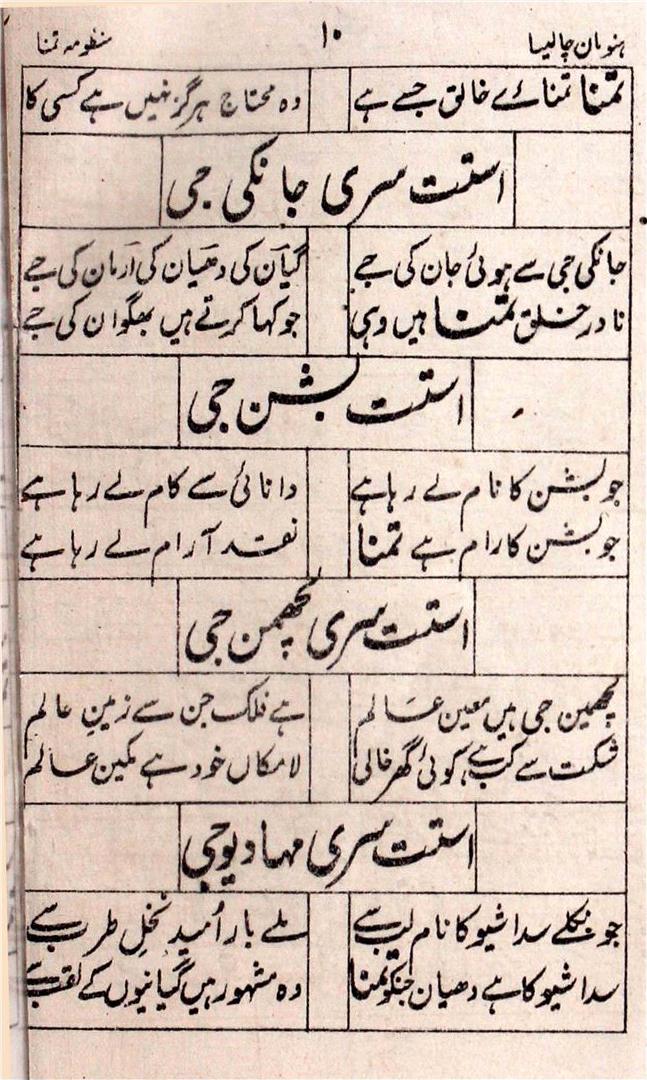 ہنومان چالیسا ۱۰ منظومہ تمنا
تمنا تمنائے خالق جسے ہے وہ محتاج ہرگز نہیں ہے کسی کا
استت سری جانکی جی
جانکی جی سے ہوئی جان کی جے گیان کی دھیان کی ارمان کی جے
نادر خلق تمنا ہیں وہی جو کہا کرتے ہیں بھگوان کی جے
استت بشن جی
جو بشن کا نام لے رہا ہے دانائی سے کام لے رہا ہے
جو بشن کا رام ہے تمنا نقد آرام لے رہا ہے
استت سری لچھمن جی
لچھمن جی ہیں معین عالم ہے فلک جن سے زمین عالم
شکت سے کب ہے کوئی گھر خالی لامکاں خود ہے مکین عالم
استت سری مہادیو جی
جو نکلے سدا شیو کا نام لب سے ملے بار اُمید نخلِ طرب سے
سدا شیو کا ہے دھیان جنکو تمنا وہ مشہور ہیں گیانیوں کے لقب سے